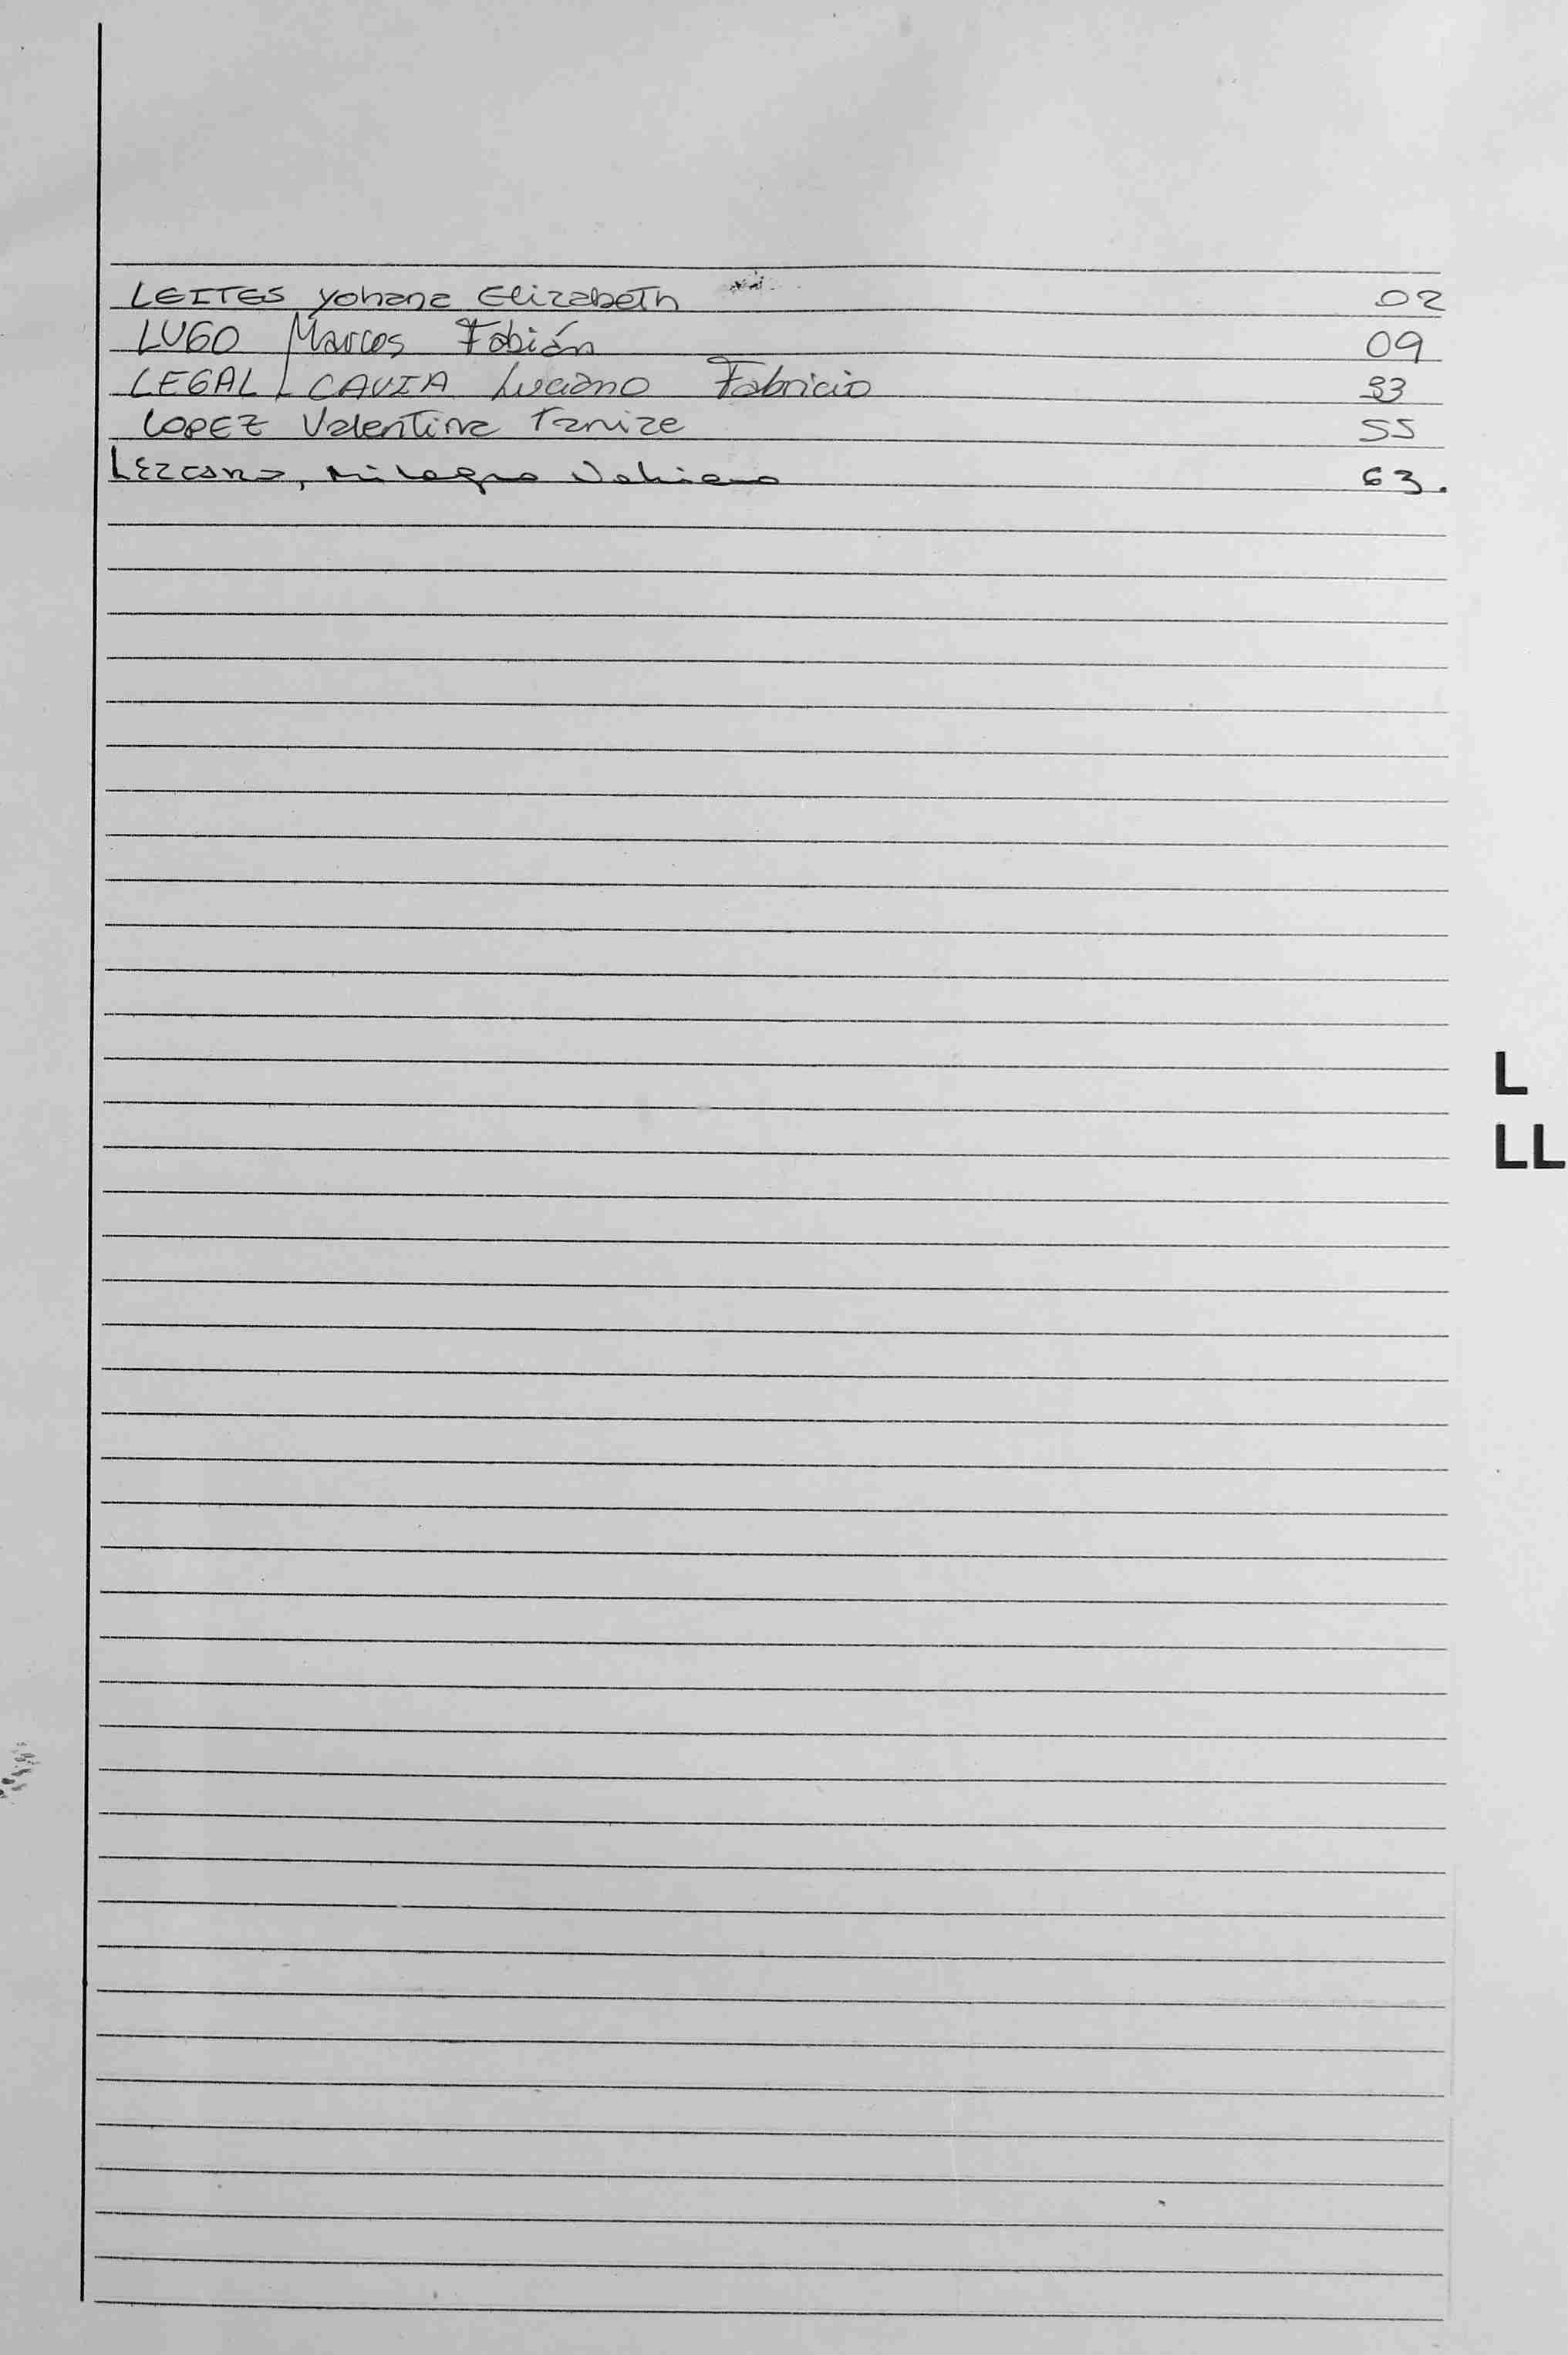 LEITES Yohana Elizabeth 02
LUGO Marcos Fabián 09
LEGAL CAVIA Luciano Fabricio 33
LOPEZ Valentina Tanize 55
Lezcano, Milagro 63.
L
LL